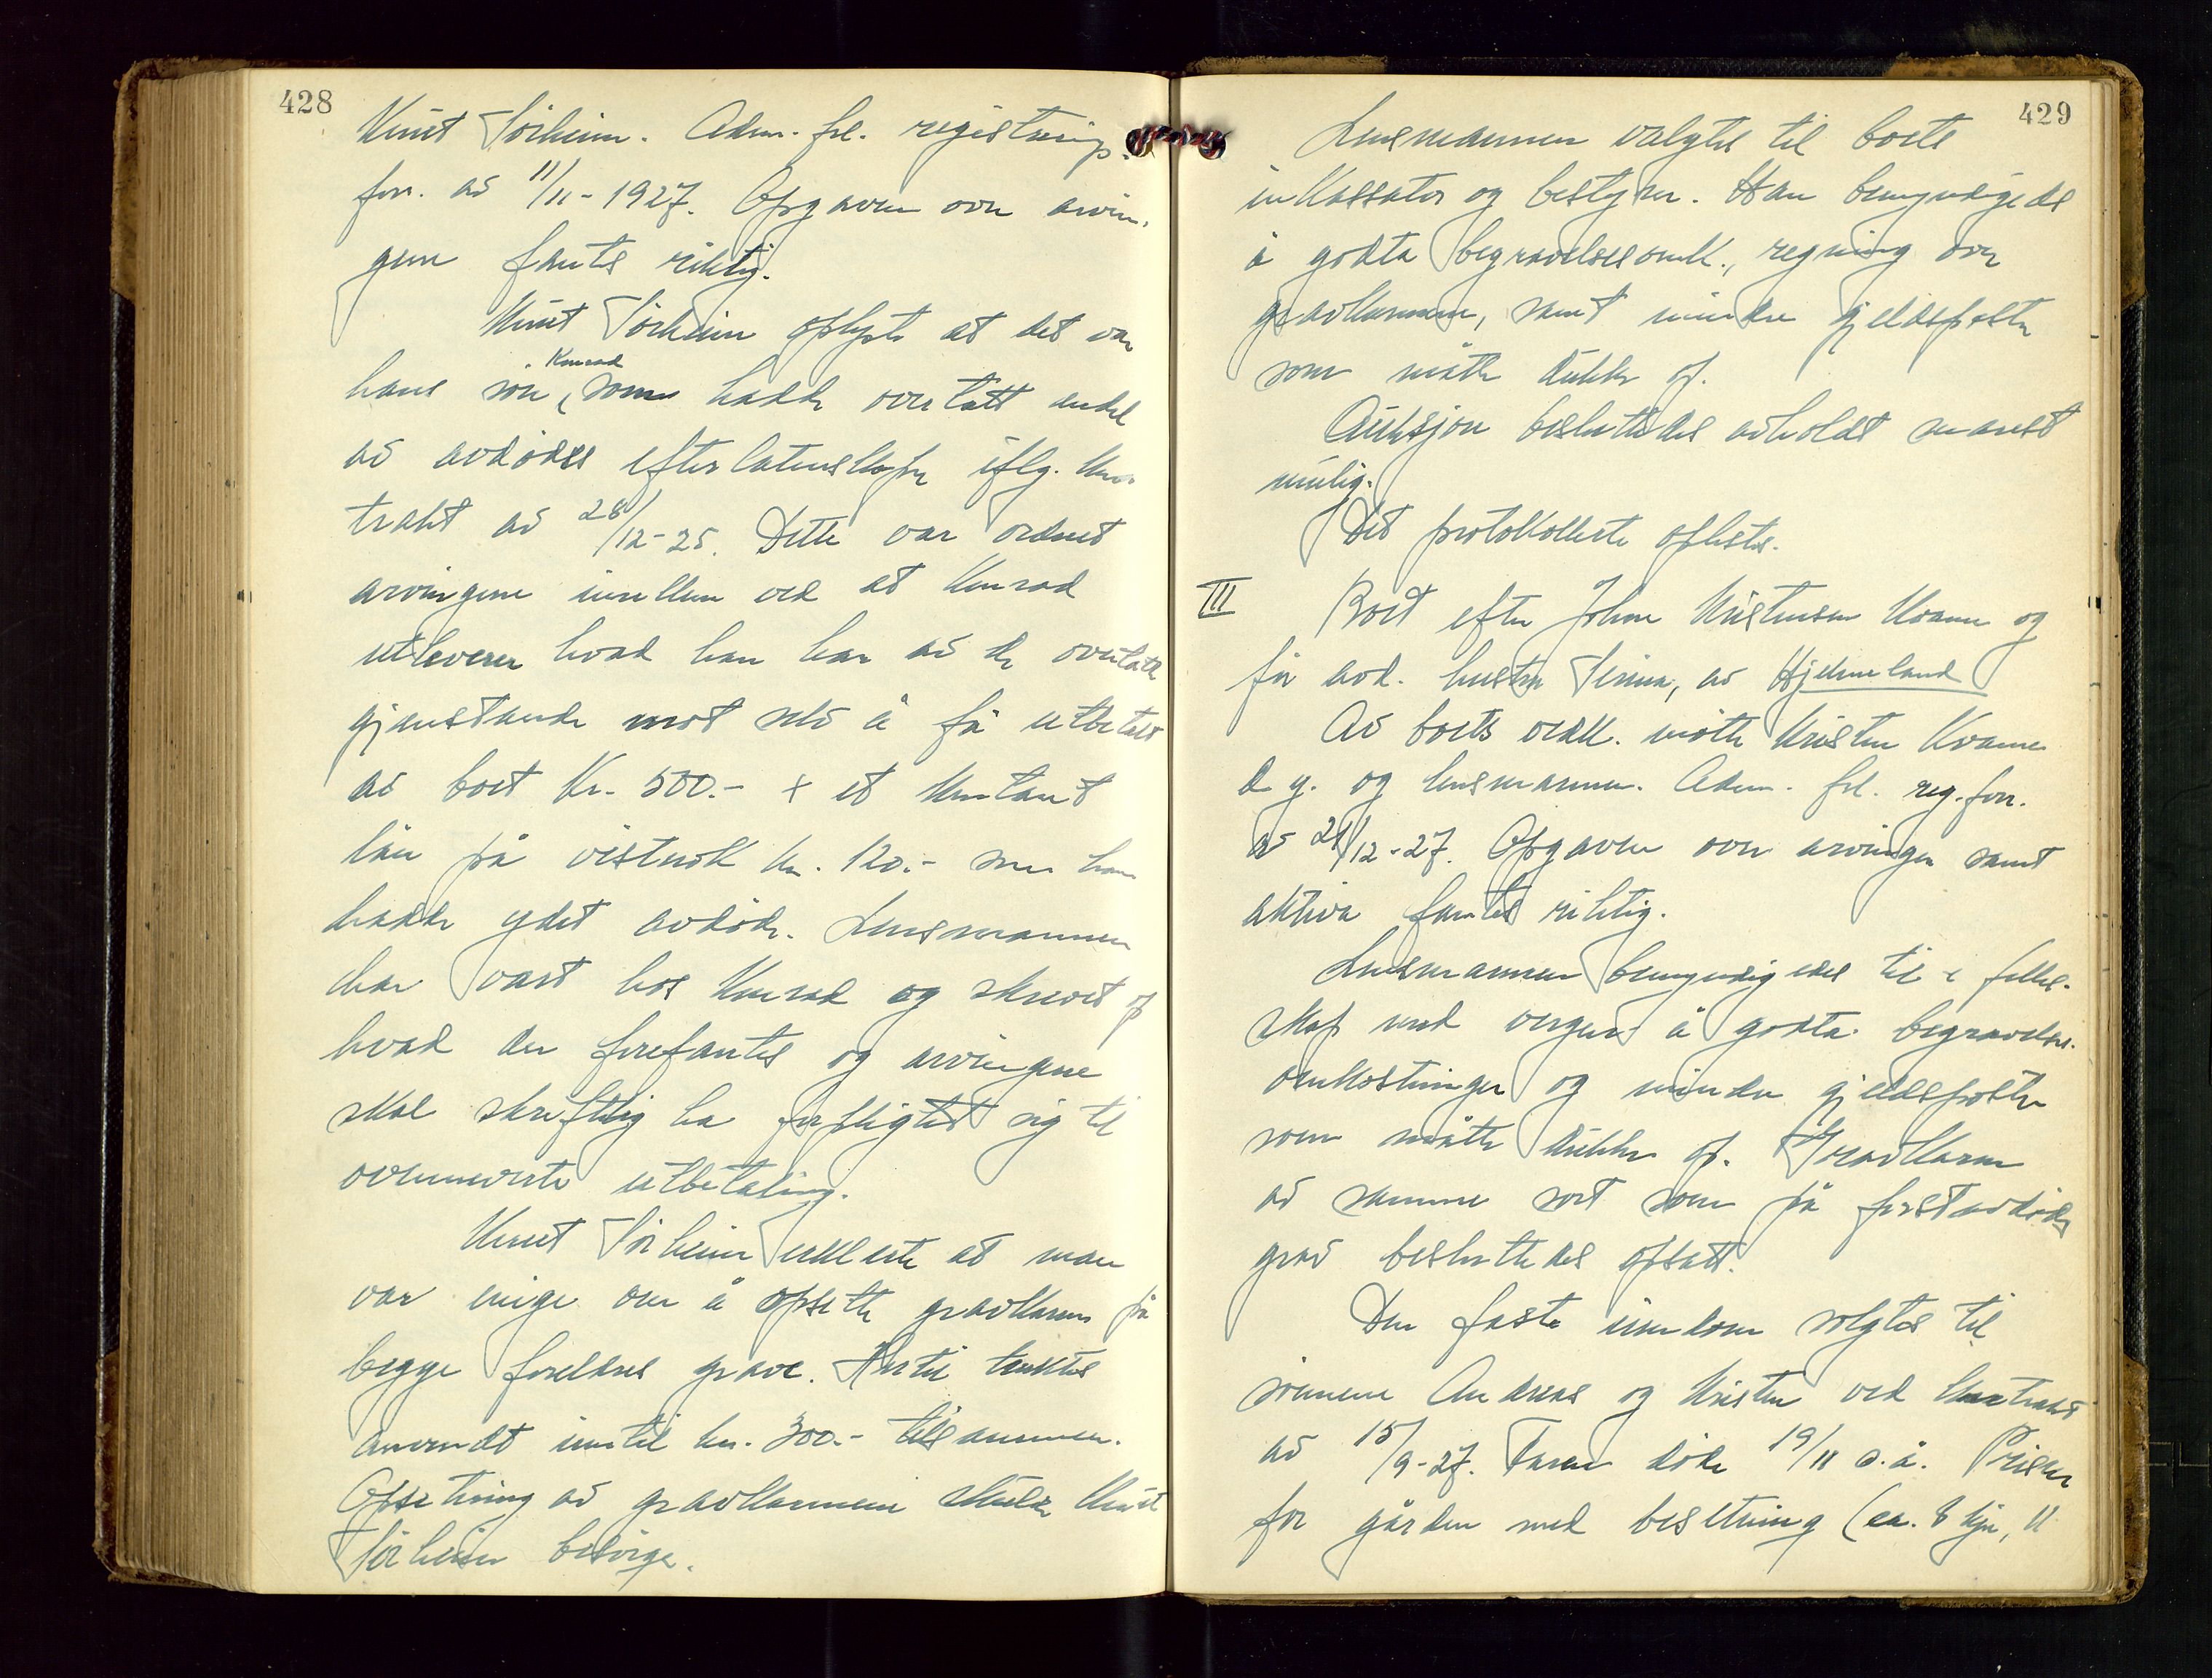 428
Knut Sörheim. Adm. frl. registrerings
forr. av 11/11-1927. Opgaven over arvin-
gene fantes riktig.
Knut Sörheim oplyste at det var
hans sön Konrad som hadde overtatt endel
av avdödes efterlatenskaper iflg. kon-
trakt av 28/12-25. Dette var ordnet
arvingene imellem ved at Konrad
utleverer hvad han har av de overtatte
gjenstande mot selv å få utbetalt
av boet Kr. 500.- + et kontant
lån på vistnok kr. 120.- som han
hadde ydet avdöde. Lensmannen
har vært hos Konrad og skrevet op
hvad der forefantes og arvingene
skal skriftlig ha forpligtet sig til
ovennevnte utbetaling.
Knut Sörheim erklærte at man
var enige om å opsette gravkarm på
begge foreldres grave. Hertil tenktes
anvendt inntil kr. 300.- tilsammen.
Opsetning av gravkarmene skulde Knut
Sörheim besörge.
429
Lensmannen valgtes til boets
inkassator og bestyrer. Han bemyndigedes
å godta begravelsesomk., regning over
gravkarmene, samt mindre gjeldsposter
som måtte dukke op.
Auksjon besluttedes avholdt snarest
mulig.
Det protokollerte oplestes.
III Boet efter John Kristensen Kvame og
för avd. hustru Sirina, av Hjelmeland
Av boets vedk. mötte Kristen Kvame
d. y. og lensmannen. Adm. frl. reg.forr.
av 21/12-27. Opgaven over arvinger samt
aktiva fantes riktig.
Lensmannen bemyndigedes til i felles-
skap med vergen å godta begravelses-
omkostninger og mindre gjeldsposter
som måtte dukke op. Gravkarm
av samme sort som på förstavdödes
grav besluttedes opsatt.
Den faste eiendom solgtes til
sönnene Andreas og Kristen ved kontrakt
av 15/9-27. Faren döde 19/11 s.å. Prisen
for gården med besetning (ca. 8 kjör, 11